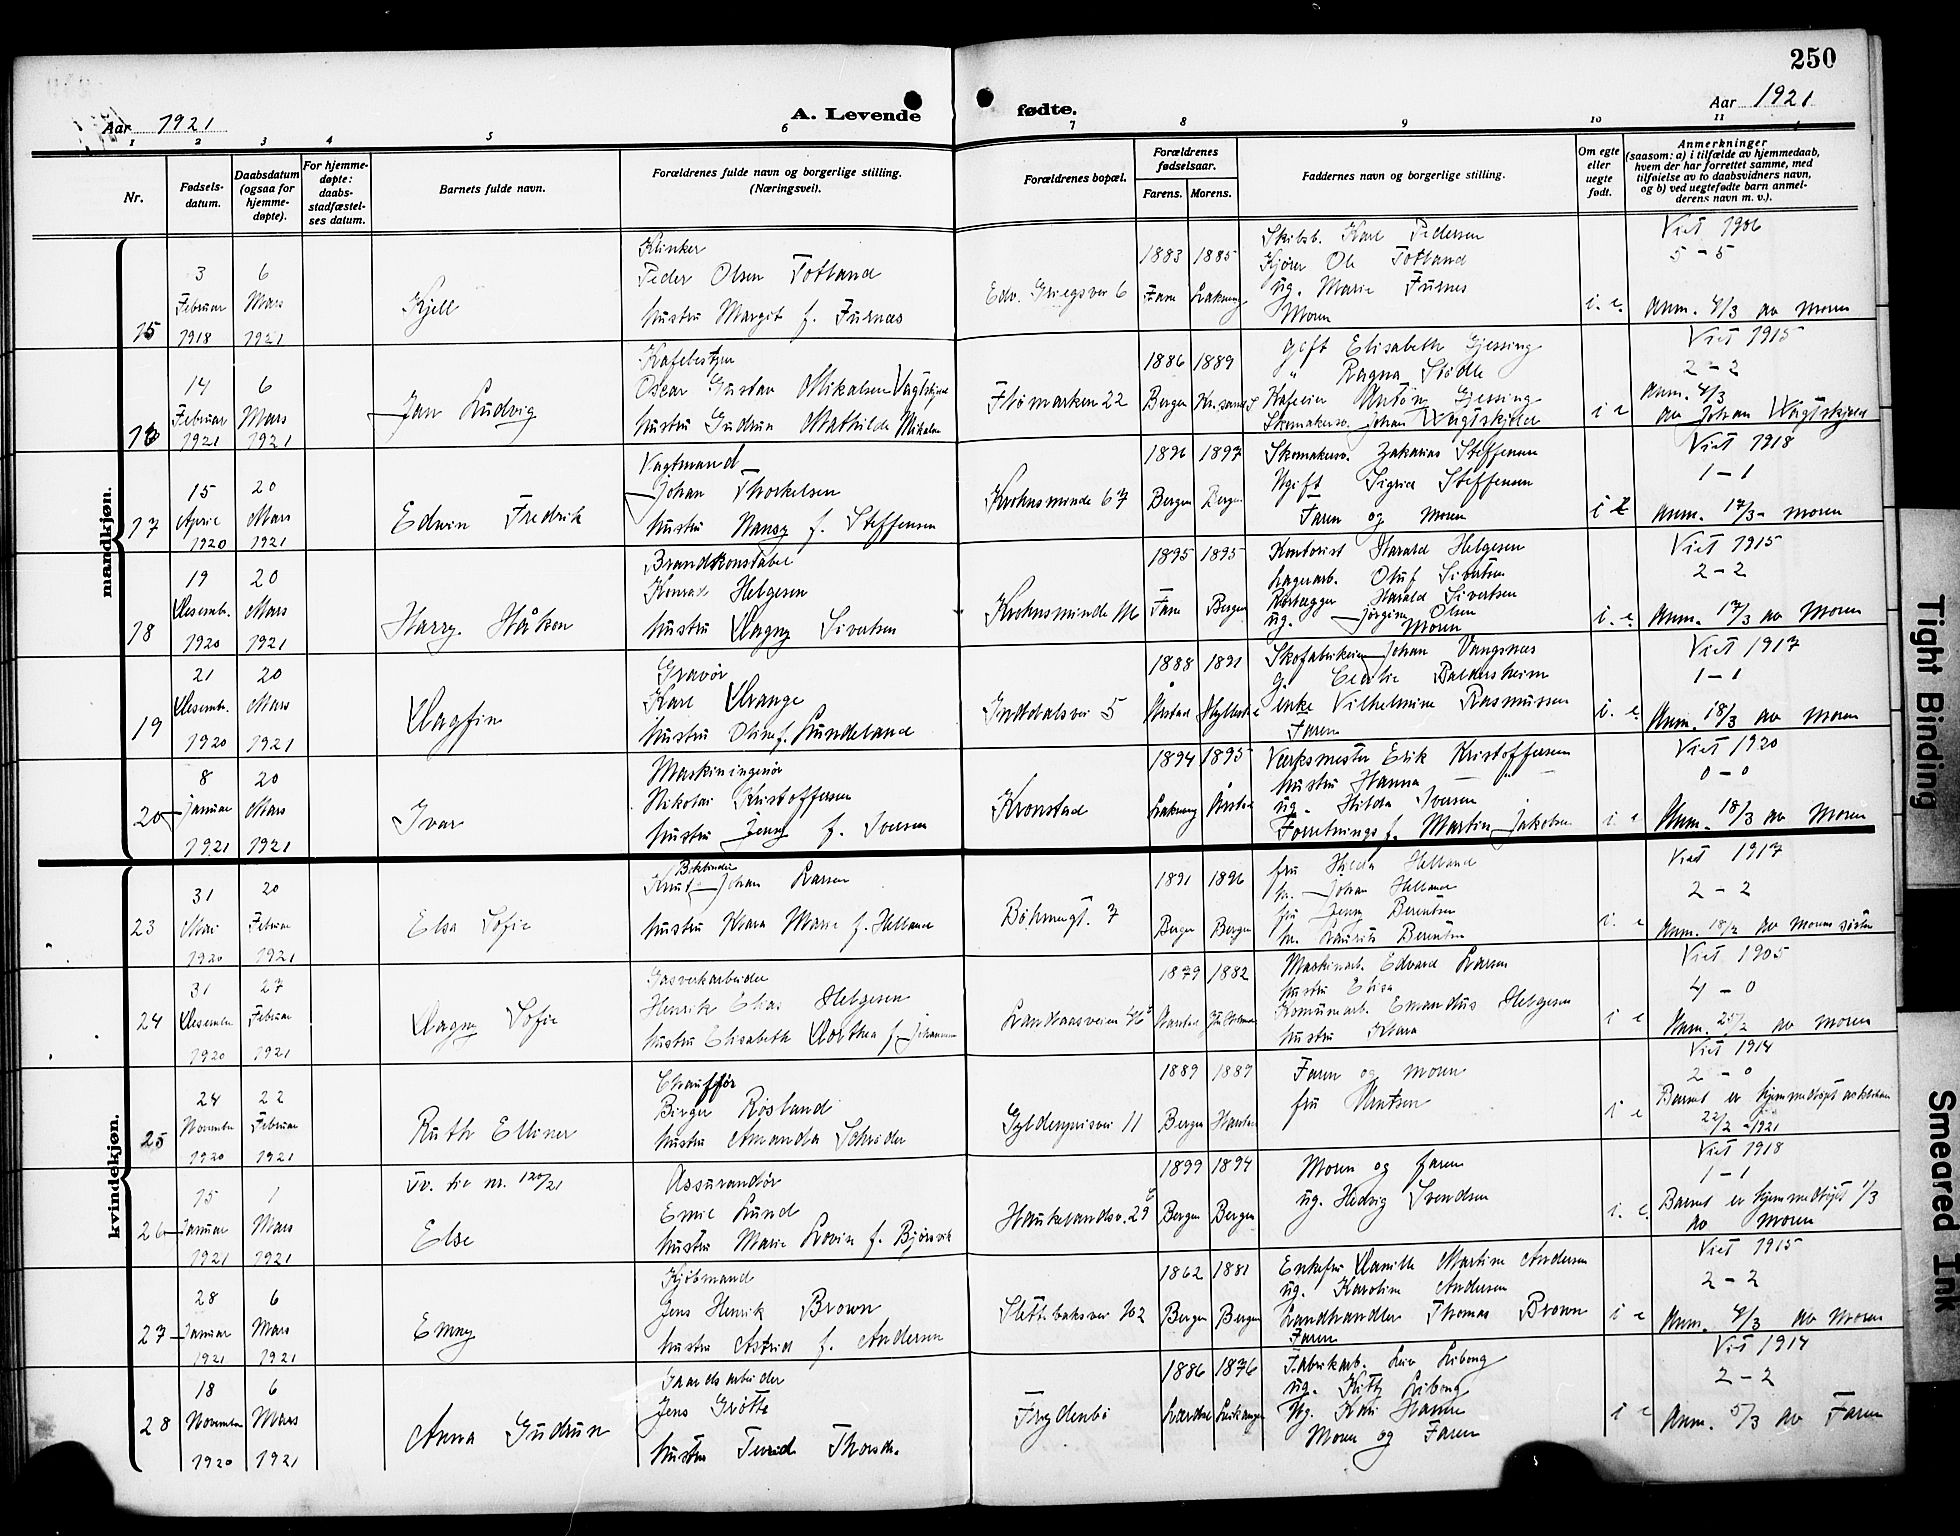 250
Aar 1921
A. Levende
fødte.
Aar 1921
1 2 3 4 5 6 7 8 9 10 11
Nr.
Fødsels-
datum.
Daabsdatum
(ogsaa for
hjemme-
døpte).
For hjemme-
døpte:
daabs-
stadfæstel-
ses datum.
Barnets fulde navn.
Forældrenes fulde navn og borgerlige stilling.
(Næringsvei).
Forældrenes bopæl.
Forældrenes
fødselsaar.
Farens. Morens.
Faddernes navn og borgerlige stilling.
Om egte
eller
uegte
født.
Anmerkninger
(saasom: a) i tilfælde av hjemmedaab,
hvem der har forrettet samme, med
tilføielse av to daabsvidners navn,
og b) ved uegtefødte barn anmel-
derens navn m. v.).
mandkjøn.
15
3
Februar
1918
6
Mars
1921
Kjell
Klinker
Peder Olsen Totland
hustru Margit f. Furnæs
Edv. Griegsvei 6
1883 1885
Fane
Skibsb. Karl Pedersen
Kjører Ole Totland
ug. Marie Furnes
Moren
i. e.
Viet 1906
5 - 5
Anm. 4/3 av moren
16
14
Februar
1921
6
Mars
1921
Jan Ludvig
Kafebestyrer
Oscar Gustav Mikalsen Vagtskjold
hustru Gudrun Mathilde Mikalsen
Flømarken 22
1886 1889
Bergen Kr.sand S
gift Elisabeth Gjessing
" Ragna Stødle
Kafeeier Gjessing
Skomakersv. Johan
i e
Viet 1915
2 - 2
Anm. 4/3
av Johan
17
15
April
1920
20
Mars
1921
Edwin Fredrik
Vagtmand
Johan Thorkelsen
hustru Nancy f. Steffensen
Krohnsminde 67
1896 1897
Bergen Bergen
Skomakersv. Zakarias Steffensen
Ugift Sigrid Steffensen
Faren og Moren
i e
Viet 1918
1 - 1
Anm. 17/3 - moren
18
19
Desemb.
1920
20
Mars
1921
Harry Håkon
Brandkonstabel
Konrad Helgesen
hustru Dagny Sivertsen
Krohnsminde M
1895 1895
Fane Bergen
Kontorist Harald Helgesen
Lagerarb. Oluf Sivertsen
Rørlegger Harald Sivertsen
ug. Jørgine Olsen
Moren
i. e.
Viet 1915
2 - 2
Anm. 17/3 av Moren
19
21
Desemb.
1920
20
Mars
1921
Dagfin
Gravør
Karl Drange
hustru Oline f. Lundeland
Inndalsvei 5
1888 1891
Årstad
Skofabrikeier Johan Vangsnes
g. Baldersheim
enke Vilhelmine Rasmussen
Faren
i. e.
Viet 1917
1 - 1
Anm. 18/3 av Moren
20
8
Januar
1921
20
Mars
1921
Ivar
Maskiningeniør
Nikolai Kristoffersen
hustru Jenny f. Iversen
Kronstad
1894 1895
Årstad
Verksmester Erik Kristoffersen
hustru Hanna —"—
ug. Hilda Iversen
Forretningsf. Martin Jakobsen
i. e
Viet 1920
0 - 0
Anm. 18/3 av Moren
kvindekjøn.
23
31
Mai
1920
20
Februar
1921
Elsa Sofie
Bokbinder
Knut Johan Larsen
hustru Klara Marie f. Helland
Bøhmergt. 7
1891 1896
Bergen Bergen
fru Hilda Helland
hr. Johan Helland
fru Jenny Berentsen
hr. Lauritz Berentsen
i. e
Viet 1917
2 - 2
Anm. 18/2 av Morens søster
24
31
Desember
1920
27
Februar
1921
Dagny Sofie
Gasverkarbeider
Henrik Elias Helgesen
hustru Elisabeth Dorthea f. Johannesen
Landaasveien
1879 1882
Maskinarb. Edvard Larsen
hustru Elisa
Komunearb. Emandus Helgesen
hustru Klara
i e
Viet 1905
4 - 0
Anm. 25/2 av Moren
25
24
November
1920
22
Februar
1921
Ruth Elliner
Chauffør
Birger Røsland
hustru Amanda Schrøder
Gyldenprisvei 11
1889 1889
Bergen
Faren og moren
fru
i e
Viet 1914
2 - 0
Barnet er hjemmedøpt
22/2 - 1921
26
15
Januar
1921
1
Mars
1921
Tv. tie nr. 120/21
Else
Assurandør
Emil Lund
hustru Marie Lovise f. Bjørsvik
Haukelandsv. 29
1899 1894
Bergen Bergen
Moren og faren
ug. Hedvig Svendsen
i. e.
Viet 1918
1 - 1
Barnet er hjemmedøpt 1/3
av moren
27
28
Januar
1921
6
Mars
1921
Emmy
Kjøbmand
Jens Henrik Brown
hustru Astrid f. Andersen
Slettebaksvei 102
1862 1881
Bergen Bergen
Enkefru Martine Andersen
ug. Karoline Andersen
Landhandler Thomas Brown
Faren
i e
Viet 1915
2 - 2
Anm. 4/3 av Moren
28
18
November
1920
6
Mars
1921
Anna Gudrun
Gaardsarbeider
Jens Grøtte
hustru Turid
Frydenbø
1886 1876
Lærdal Leikanger
Fabrikarb. Leiv Siborg
ug. Kitty Siborg
ug. Kari Hamre
Moren og Faren
i e
Viet 1914
2 - 2
Anm. 5/3 av Faren
Tight Binding
Smeared Ink